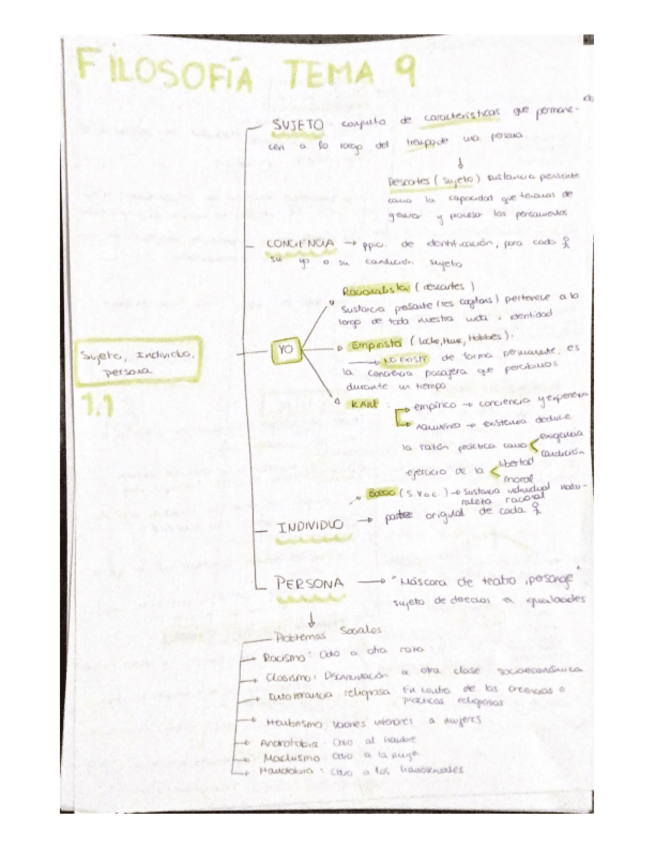 FILOSOFÍA TEMA 9
SUJETO conjunto de características que permane-
cen a lo largo del tiempo de una persona
Descartes (sujeto) sustancia pensante
como la capacidad que tenemos de
generar y procesar los pensamientos
CONCIENCIA → ppio. de identificación, para cada
su yo o su condición sujeto
Racionalista (descartes)
Sustancia pensante (res cogitans) pertenece a lo
largo de toda nuestra vida = identidad
YO
Empirista (Locke, Hume, Hobbes).
→ NO EXISTE de forma permanente, es
la conciencia pasajera que percibimos
durante un tiempo
Sujeto, Individuo,
persona
1.1
KANT :
empírico → conciencia y experiencia
→ existencia deduce
la razón práctica como exigencia
condición
ejercicio de la libertad
moral
Boecio (S. V d.C.) → Sustancia individual natu-
raleza racional
INDIVIDUO → parte original de cada
PERSONA → "Máscara de teatro, personaje"
sujeto de derechos e
Problemas Sociales
Racismo: Odio a otra raza
Clasismo: Discriminación a otra clase socioeconómica
Intolerancia religiosa En contra de las creencias o
prácticas religiosas
Hembrismo: Varones inferiores a mujeres
Androfobia: Odio al hombre
Machismo: Odio a la mujer
Odio a los